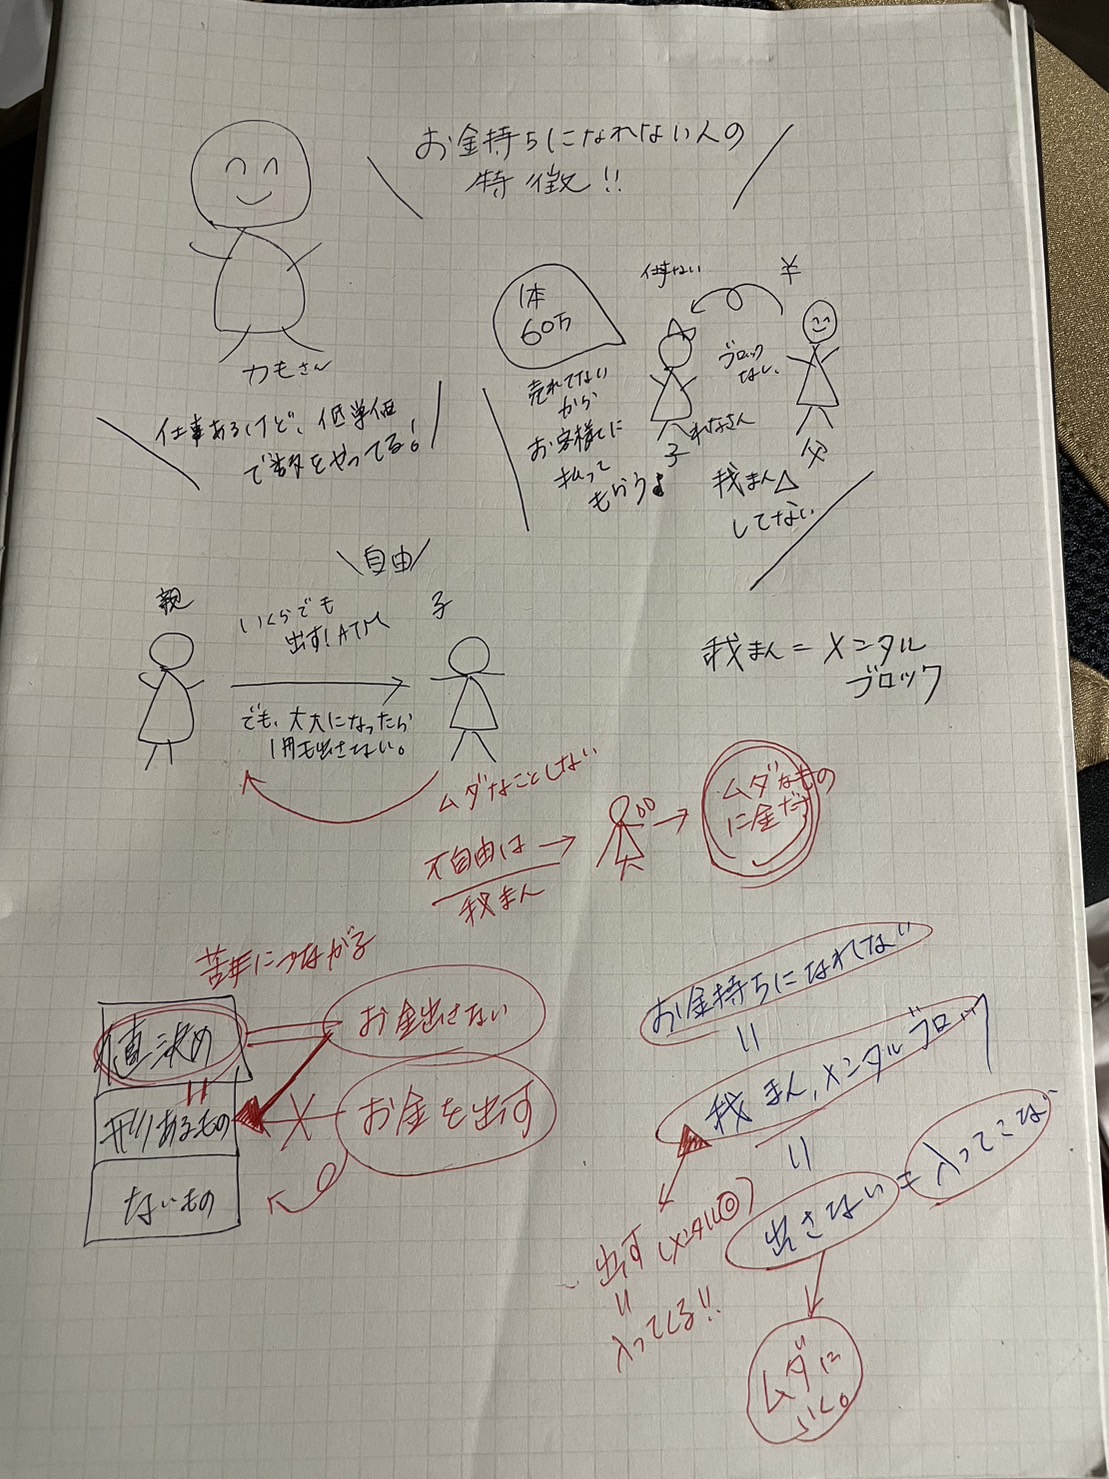 お金持ちになれない人の
特徴!!
カモさん
仕事あるけど、低単価
でをやってる!
1本
60万
売れてない
から
お客様に
払って
もらう
仕事ない
¥
ブロック
なし、
子
れなさん
父
我まん
してない
自由
親
いくらでも
出す!ATM
子
でも、大人になったら
1円も出さない。
我まん=メンタル
ブロック
ムダなことしない
不自由は→
我まん
ムダなもの
に金だす
苦手につながる
値決め
お金出さない
形あるもの
×
お金を出す
ないもの
お金持ちになれない
=
我まん,メンタルブロック
=
出さない=入ってこない
出す(メンタル◎)
=
入ってくる!!
ムダに
いく。